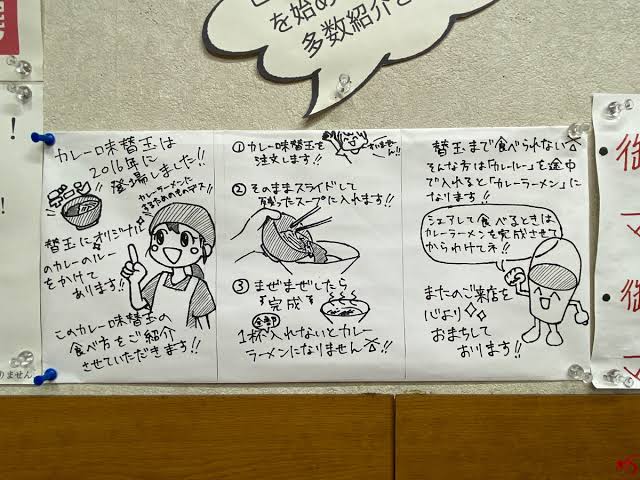 を始め
多数紹介さ
カレー味替玉は
2016年に
登場しました!!
カレーラーメンに
するためのものデス!!
替玉にオリジナル
のカレーのルー
をかけて
あります!!
このカレー味替玉の
食べ方をご紹介
させていただきます!!
① カレー味替玉を
注文します!!
すいませーん!!
② そのままスライドして
残ったスープに入れます!!
③ まぜまぜしたら
完成
全部
1杯入れないとカレー
ラーメンになりません
替玉まで食べられない
そんな方は「カレールー」を途中
で入れると「カレーラーメン」に
なります!!
シェアして食べるときは
カレーラーメンを完成させて
からわけてネ!!
またのご来店を
心より
おまちして
おります!!
!
!
りません
御
マ
御
マ